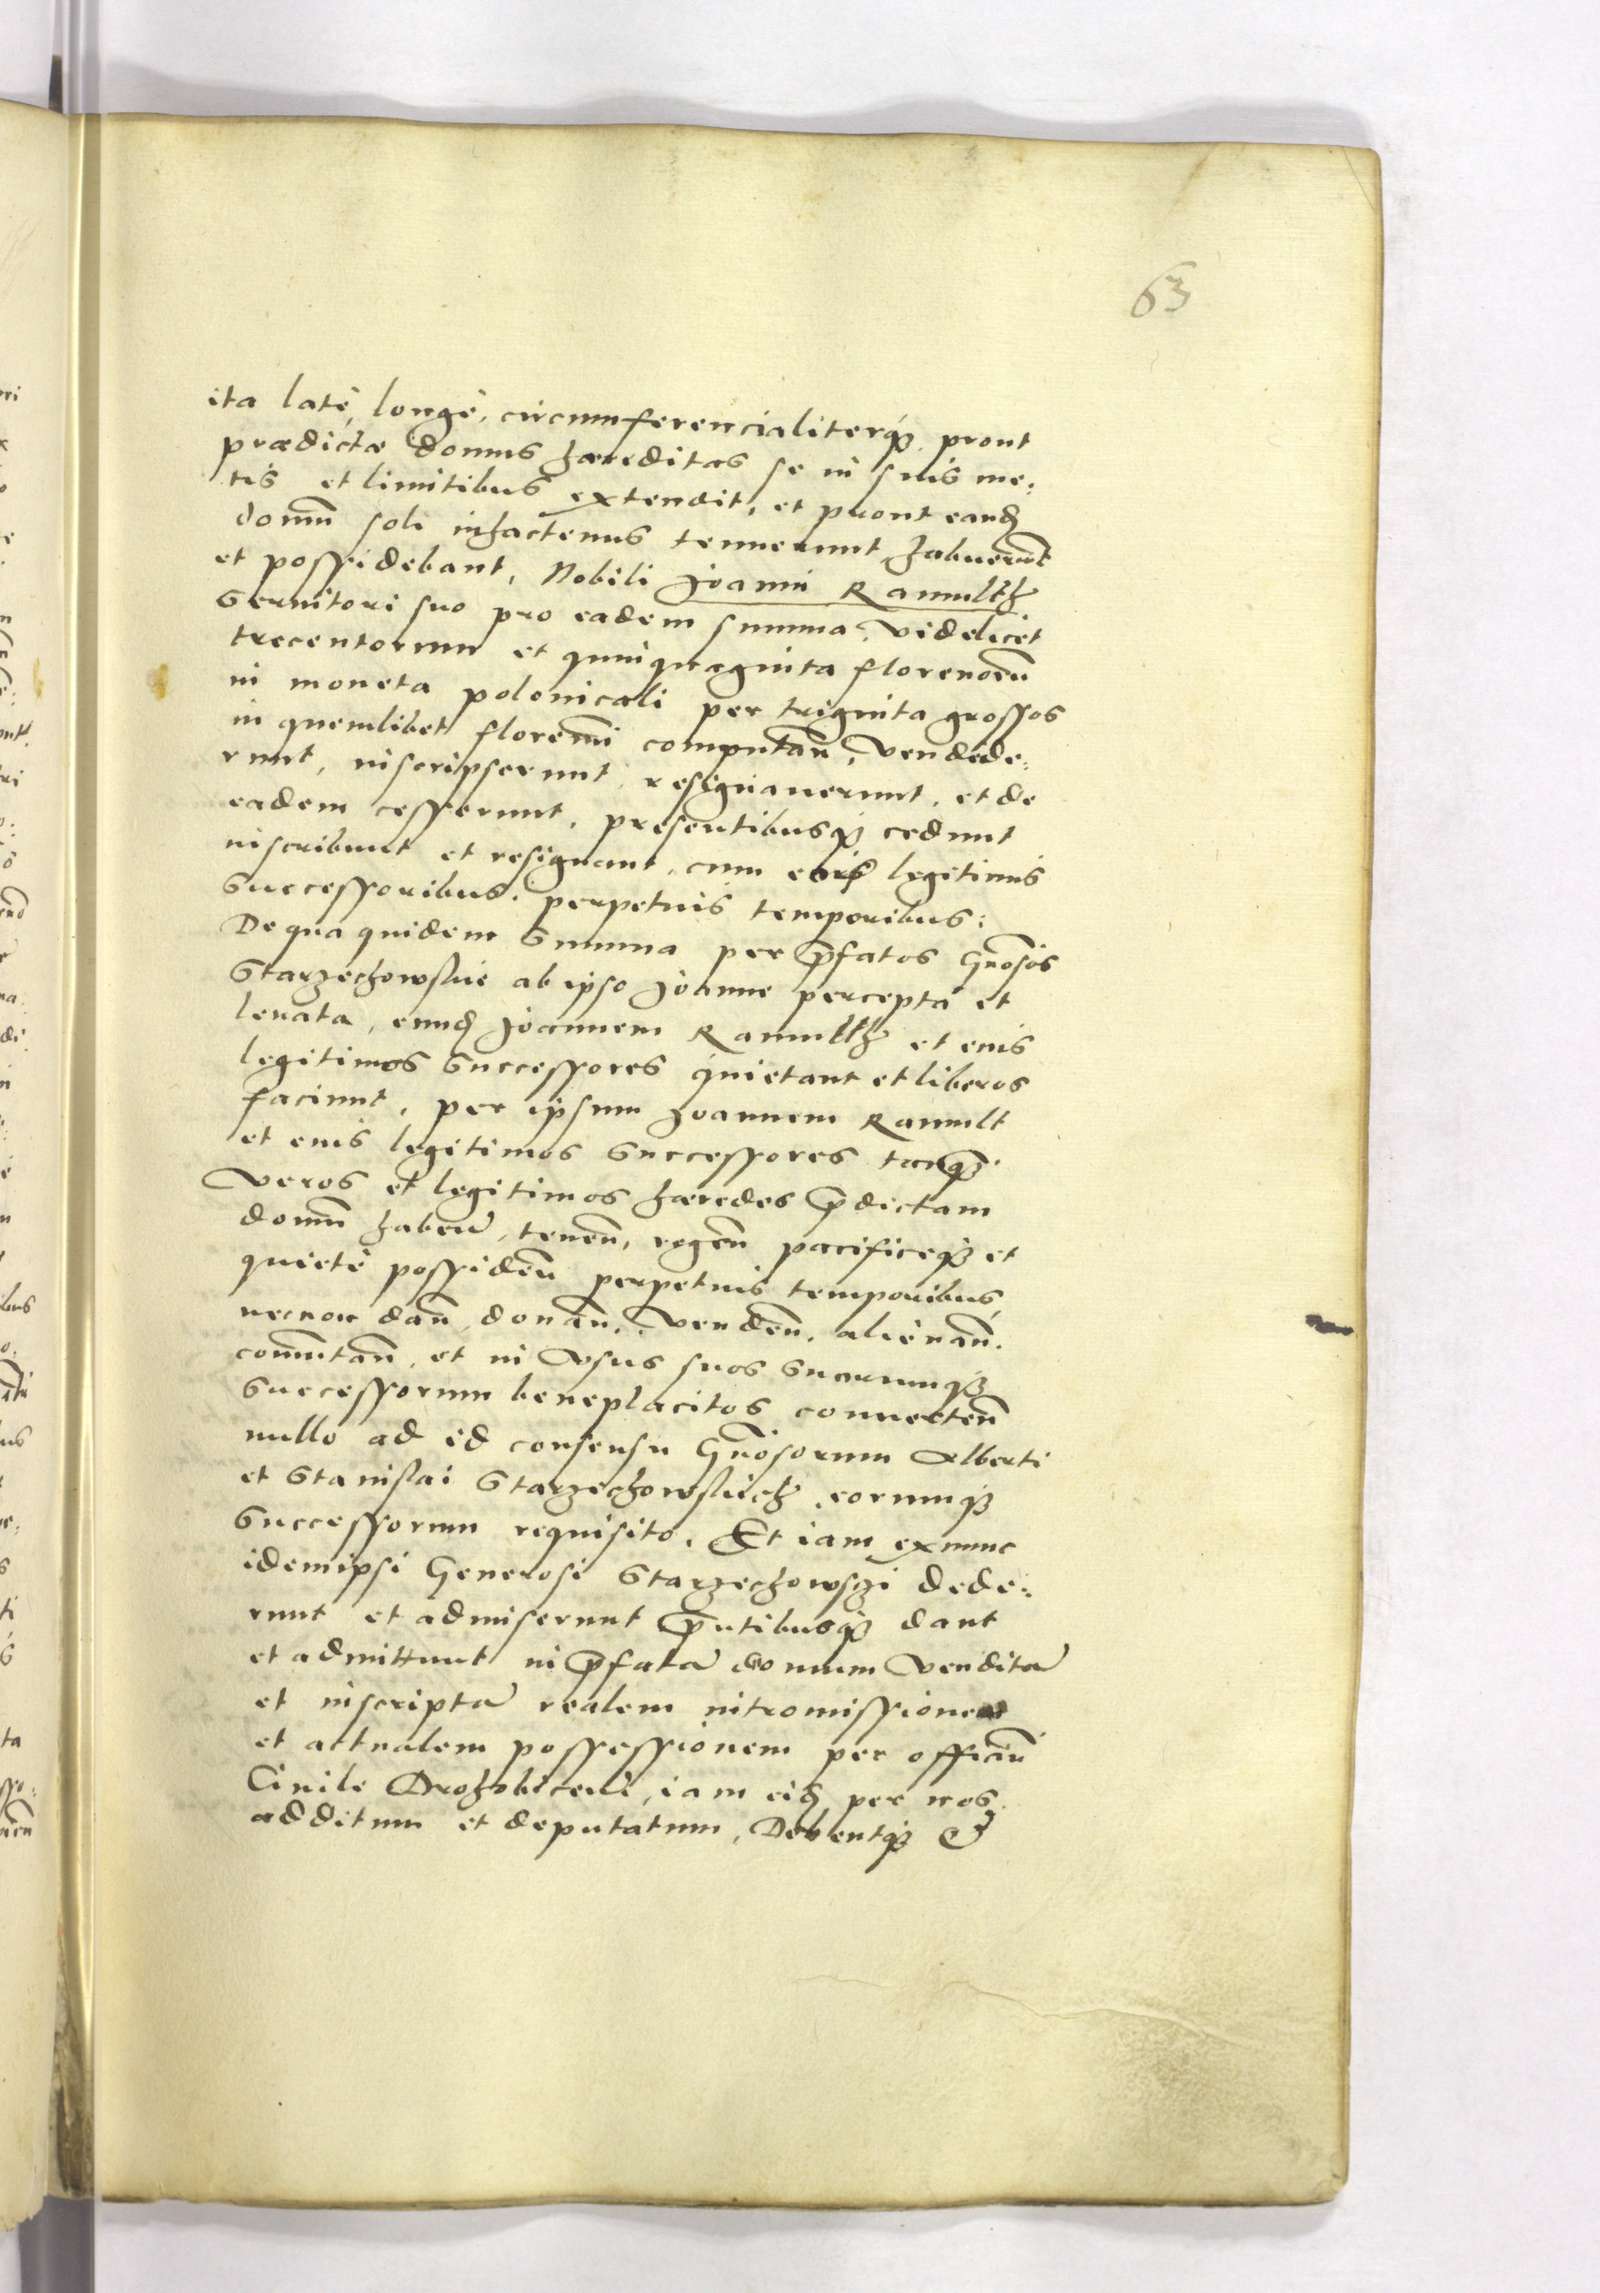 63
ita latè, longè, circumferencialiterq3 prout
prædictæ domus hæreditas se in suis me:
tis et limitibus extendit, et prout eand
domū soli inhactenus tenuerunt habuerūt
et possidebant, Nobili Joanni Ramulth
Seruitori suo pro eadem summa, videlicet
trecentorum et quinquaginta florenorū
in moneta polonicali per triginta grossos
in quemlibet florenū computañ, vendide:
runt, inscripserunt, resignauerunt, et de
eadem cesserunt, presentibusq3 cedunt
inscribunt et resignant, cum eius legitimis
Successoribus perpetuis temporibus:
De qua quidem Summa per p̄fatos Gñosos
Starzechowskie ab ipso Joanne percepta et
leuata, eund Joannem Ramulth et eius
legitimos Successores quietant et liberos
faciunt, per ipsum Joannem Ramult
et eius legitimos Successores tanq3
veros et legitimos hæredes p̄dictam
domū habeñ, teneñ, regeñ pacificeq3 et
quietè possideñ perpetuis temporibus,
necnon dañ, donañ, vendeñ, alienañ.
com̄utañ, et in vsus suos Suorumq3
Successorum beneplacitos conuerteñ
nullo ad id consensu Gñosorum Alberti
et Stanislai Starzechowskich eorumq3
Successorum requisito. Et iam exnunc
idemipsi Generosi Starzechowsczi dede:
runt et admiserunt p̄ntibusq3 dant
et admittunt in p̄fatā domum venditā
et inscriptā realem intromissionem
et actualem possessionem per officiū
Ciuile Drohobiceñ, iam eid per nos
additum et deputatum, Debentq3 &